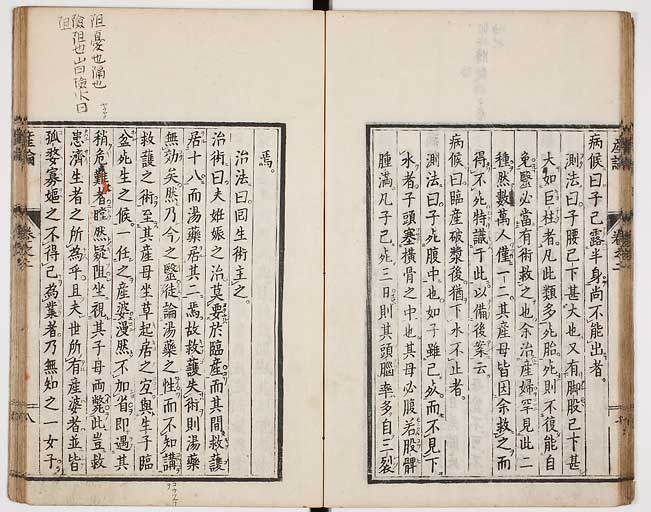 病候曰子已露半身尚不能出者
測法曰子腰已下甚大也又有脚股已下甚
大如巨柱者凡此類多死胎死則不復能自
免毉必當有術救之也余治産婦罕見此二
種然數萬人僅一二其産母皆因余救之而
得不死特識于此以備後案云
病候曰臨産破漿後猶下水不止者
測法曰子死腹中也如子雖已死而不見下
水者子頭塞橫骨之中也其母必腹若股髀
腫滿凡子已死三日則其頭腦率多自三裂
焉
治法曰回生術主之
治術曰夫姙娠之治莫要於臨産而其間救護
居十八而湯藥居其二焉故救護失術則湯藥
無効矣然乃今之毉徒論湯藥之性而不知講
救護之術至其産母坐草起居之宜與生子臨
盆死生之候一任之産婆漫然不加省即遇其
稍危難者瞠然疑阻坐視其子母而斃此豈救
患濟生者之所為乎且夫世所有産婆者並皆
孤婺寡嫗之不得已為業者乃無知之一女子
阻憂也隔也
險阻也山曰險水曰
阻
産論
八